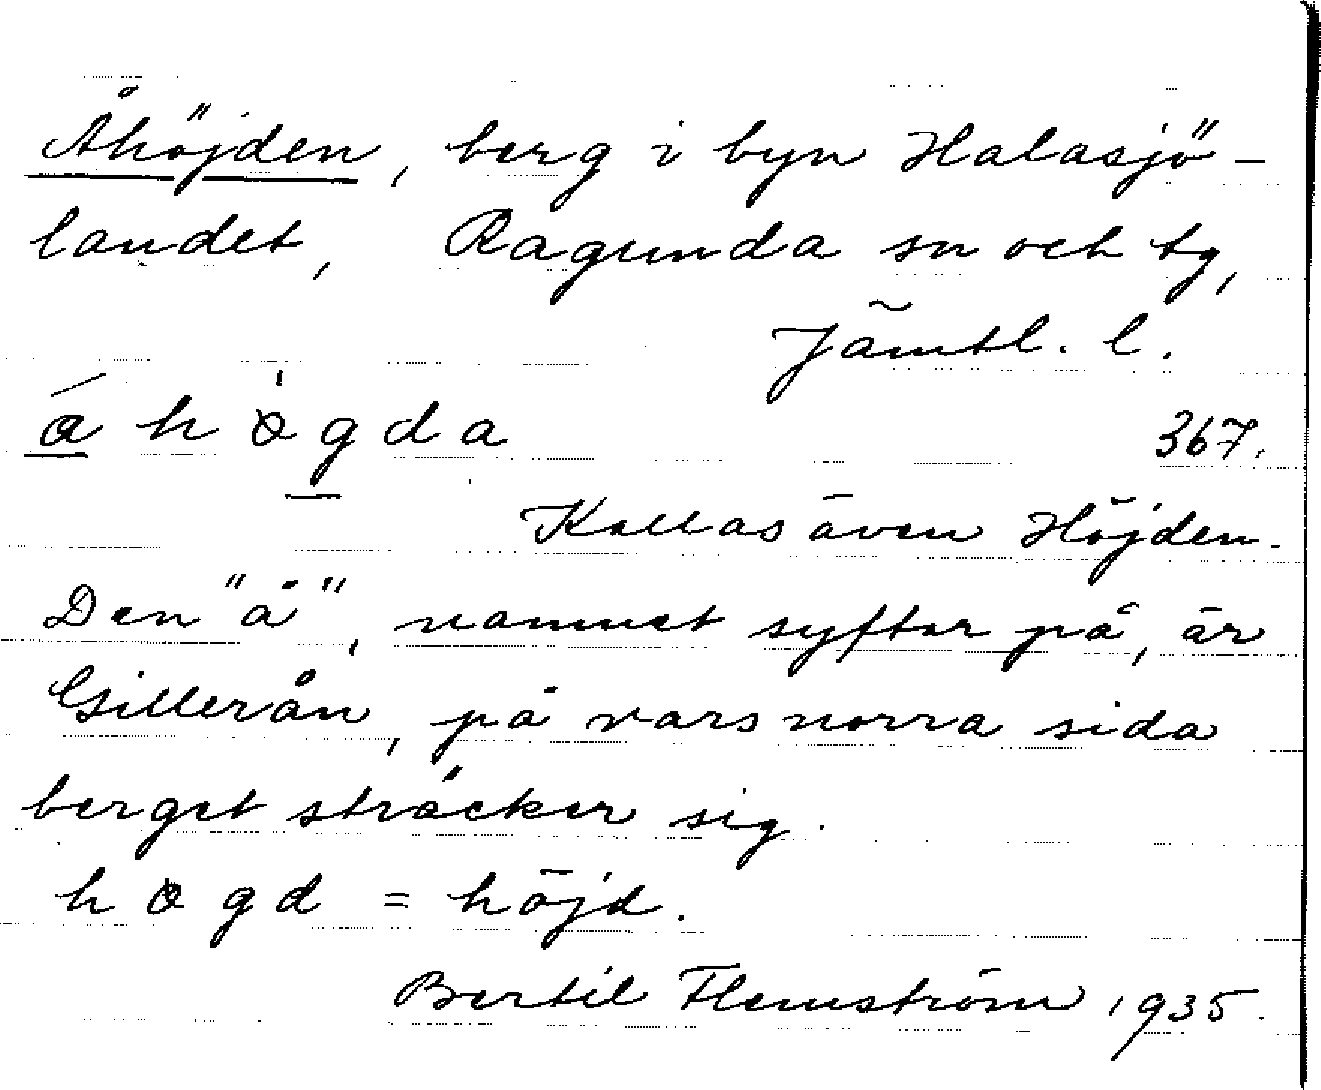 Åhöjden, berg i byn Halasjö-
landet, Ragunda sn och tg,
Jämtl. l.
á h ö g d a 367.
Kallas även Höjden.
Den "å", namnet syftar på, är
Gillerån, på vars norra sida
berget sträcker sig.
h ö g d = höjd.
Bertil Flemström 1935.